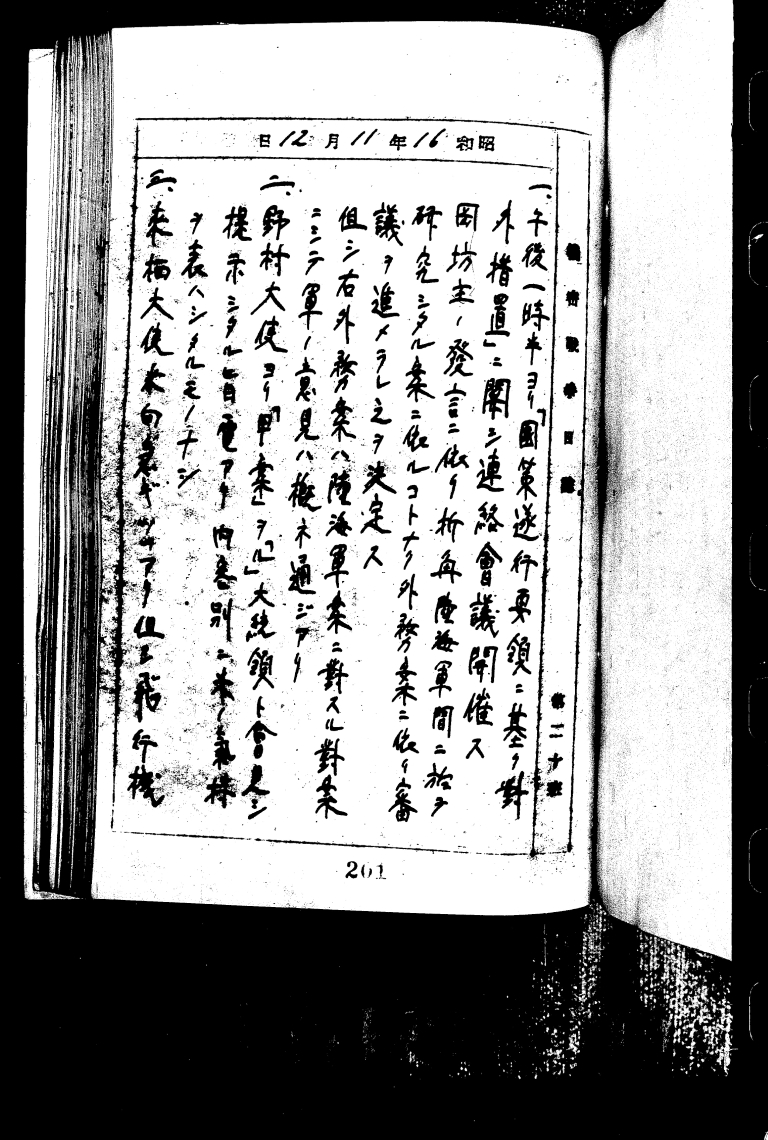 機密戰爭日誌
第二十班
昭和16年11月12日
一、午後一時半ヨリ「國策遂行要領ニ基ク對
外措置」ニ關シ連絡會議開催ス
岡坊主ノ發言ニ依リ折角陸海軍間ニ於テ
研究シタル案ニ依ルコトナク外務案ニ依リ審
議ヲ進メラレ之ヲ決定ス
但シ右外務案ハ陸海軍案ニ對スル對案
ニシテ軍ノ意見ハ概ネ通ジアリ
二、野村大使ヨリ「甲案」ヲ「ル」大統領ト會見シ
提示シタル旨電アリ內容別ニ米ノ氣持
ヲ表ハシタルモノナシ
三、來栖大使米向急ギツツアリ但シ飛行機
201